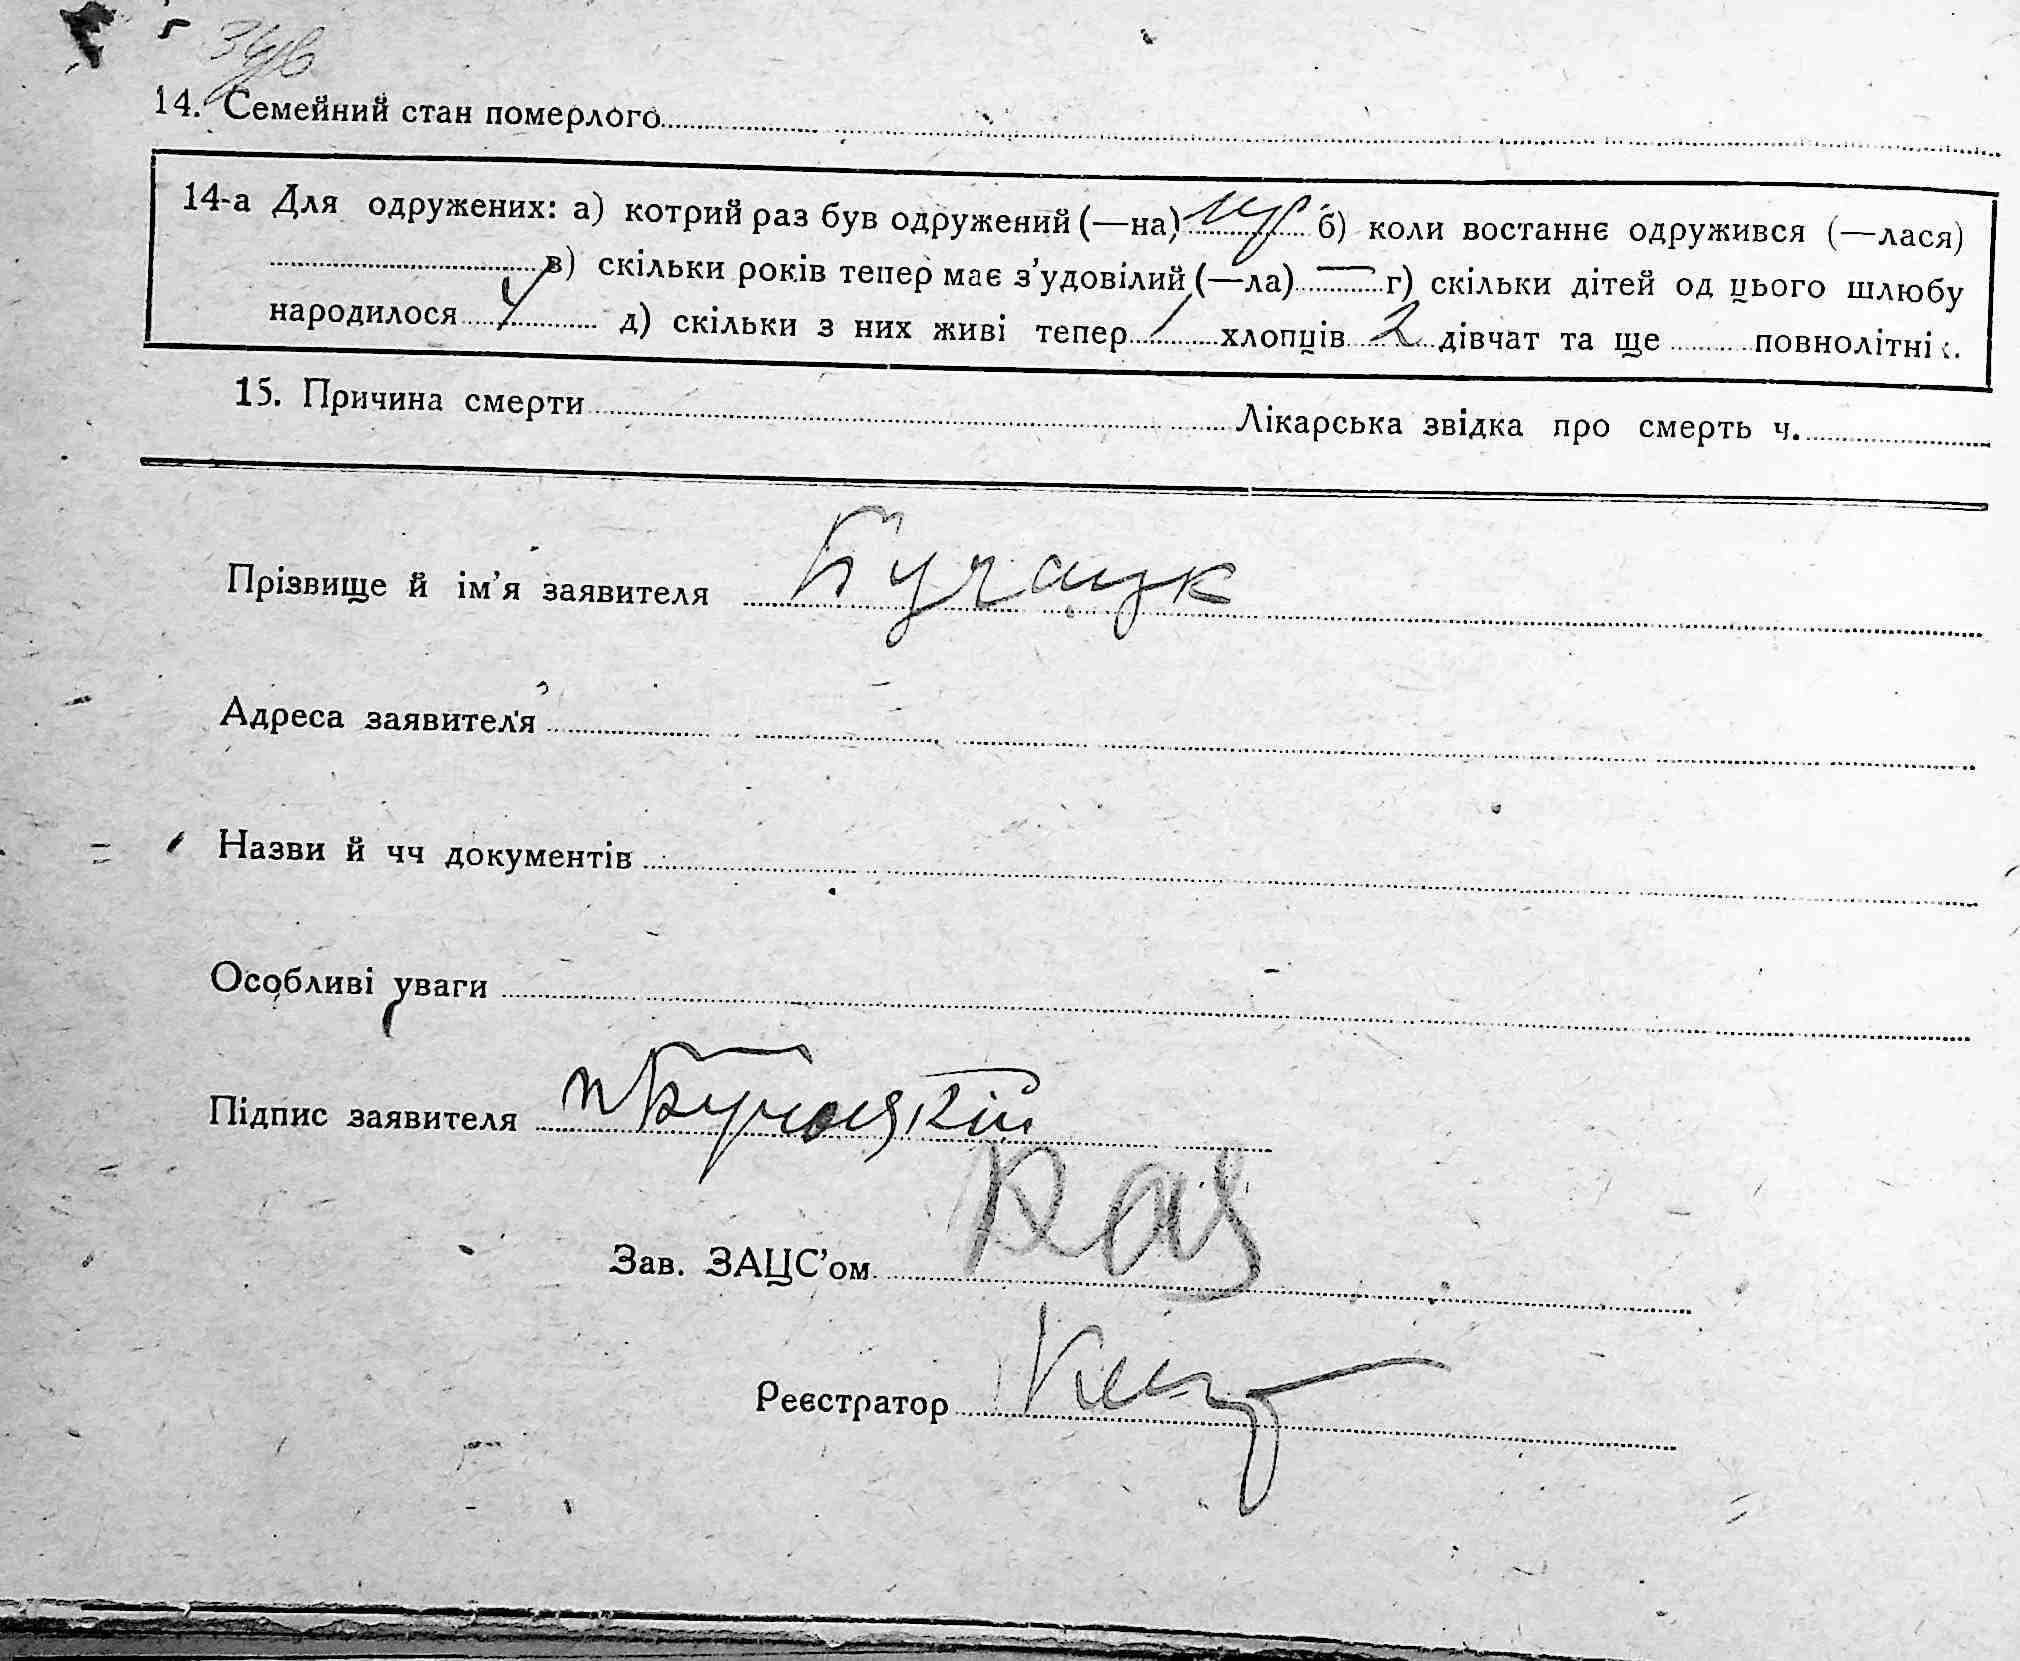 14. Семейний стан померлого
14-а Для одружених: а) котрий раз був одружений (—на) б) коли востаннє одружився (—лася)
в) скільки років тепер має з’удовілий (—ла) — г) скільки дітей од цього шлюбу
народилося 4 д) скільки з них живі тепер 1 хлопців 2 дівчат та ще повнолітні
15. Причина смерти Лікарська звідка про смерть ч.
Прізвище й ім’я заявителя
Адреса заявителя
Назви й чч документів
Особливі уваги
Підпис заявителя
Зав. ЗАЦС’ом
Реєстратор